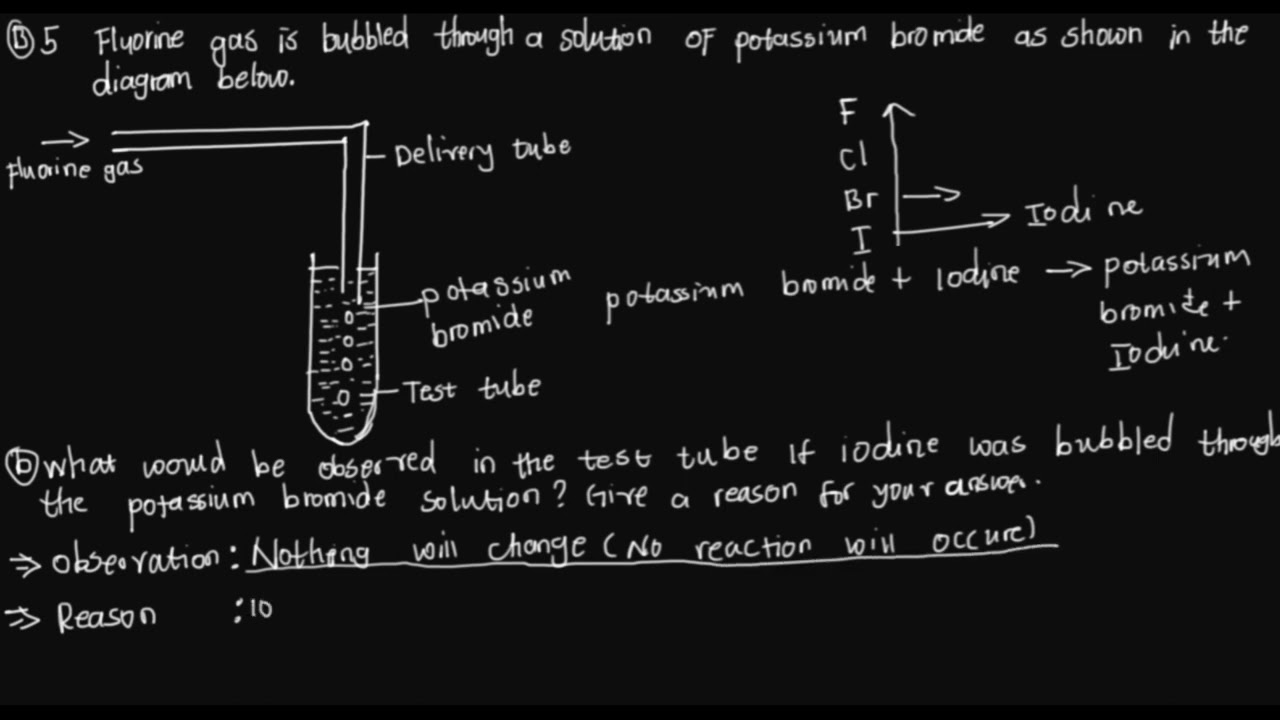 B 5 Fluorine gas is bubbled through a solution of potassium bromide as shown in the
diagram below.
Fluorine gas
Delivery tube
potassium
bromide
Test tube
F
Cl
Br
I
Iodine
potassium bromide + Iodine → potassium
bromide +
Iodine.
b What would be observed in the test tube if iodine was bubbled through
the potassium bromide solution? Give a reason for your answer.
⇒ Observation: Nothing will change (No reaction will occure)
⇒ Reason : Io